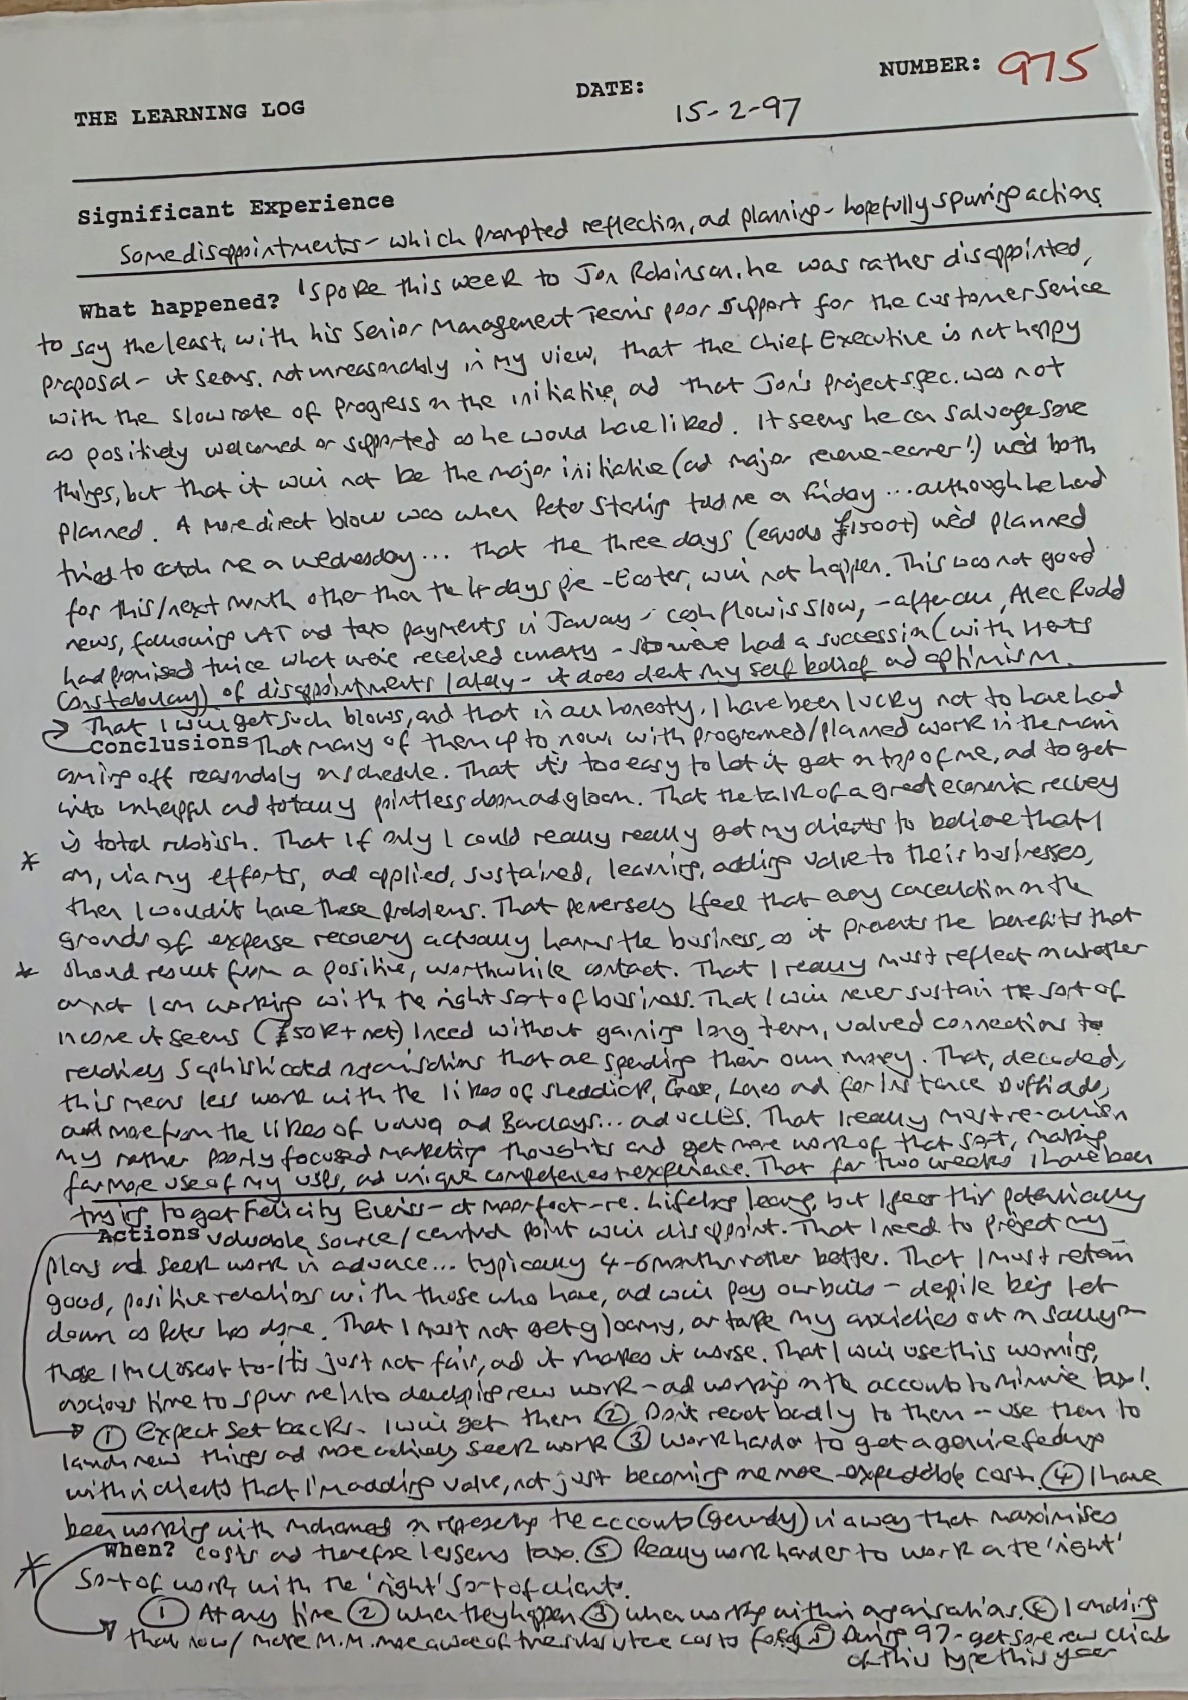 THE LEARNING LOG DATE: 15-2-97 NUMBER: 975
Significant Experience
Some disappointments - which prompted reflection, ad planning - hopefully spurring actions
What happened? I spoke this week to Jon Robinson. he was rather disappointed,
to say the least, with his Senior Management Team's poor support for the Customer Service
proposal - it seems, not unreasonably in my view, that the Chief Executive is not happy
with the slow rate of progress on the initiative, ad that Jon's project spec. was not
as positively welcomed or supported as he would have liked. It seems he can salvage some
things, but that it will not be the major initiative (ad major revenue-earner!) we'd both
planned. A more direct blow was when Peter Sterling told me on Friday ... although he had
tried to catch me on Wednesday ... that the three days (equals £1500+) we'd planned
for this/next month other than the 4 days pre-Easter, will not happen. This was not good
news, following VAT ad tax payments in January - cash flow is slow, - after all, Alec Rudd
had promised twice what we've received - so we've had a succession (with Herts
Constabulary) of disappointments lately - it does dent my self belief ad optimism.
That I will get such blows, and that in all honesty, I have been lucky not to have had
Conclusions That many of them up to now, with programed/planned work in the main
coming off reasonably on schedule. That it's too easy to let it get on top of me, ad to get
into unhelpful and totally pointless doom ad gloom. That the talk of a great economic recovery
is total rubbish. That if only I could really really get my clients to believe that I
* am, via my efforts, ad applied, sustained, learning, adding value to their businesses,
then I wouldn't have these problems. That perversely I feel that any cancellation on the
grounds of expense recovery actually harms the business, as it prevents the benefits that
* should result from a positive, worthwhile contact. That I really must reflect on whether
or not I am working with the right sort of business. That I will never sustain the sort of
income it seems (£50K+ net) I need without gaining long term, valued connections to
relatively sophisticated organisations that are spending their own money. That, decoded,
this means less work with the likes of and for instance
and more from the likes of and Barclays... ad That I really must re-
my rather poorly focused marketing thoughts and get more work of that sort, making
far more use of my USPs, ad unique competences + experience. That for two weeks I have been
trying to get Felicity - at - re. Lifelong learning, but I fear this potentially
Actions valuable source/central point will disappoint. That I need to project my
plans ad seek work in advance... typically 4-6 months rather better. That I must retain
good, positive relations with those who have, ad will pay our bills - despite being let
down as Peter has done. That I must not get gloomy, or take my anxieties out on Sally -
those I'm closest to - it's just not fair, ad it makes it worse. That I will use this worrying,
anxious time to spur me into developing new work - ad working on the accounts to minimise tax!
① Expect set backs. I will get them ② Don't react badly to them - use them to
launch new things ad more actively seek work ③ Work harder to get a genuine feeling
within clients that I'm adding value, not just becoming one more expendable cost. ④ I have
been working with Mohamed on representing the accounts in a way that maximises
When? costs ad therefore lessens tax. ⑤ Really work harder to work on the 'right'
* sort of work, with the 'right' sort of clients.
① At any time ② when they happen ③ when working within organisations. ④
that now/ more ⑤ During 97 - get some new clients
of this type this year